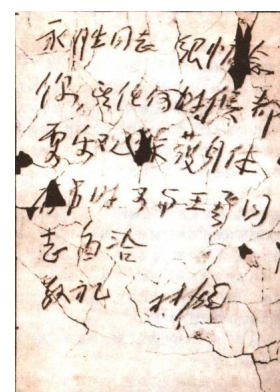 永胜同志 很惦念
你，望任何时候都
要乐观保護身体
有事时可与王飛同
志面洽
敬礼 林彪